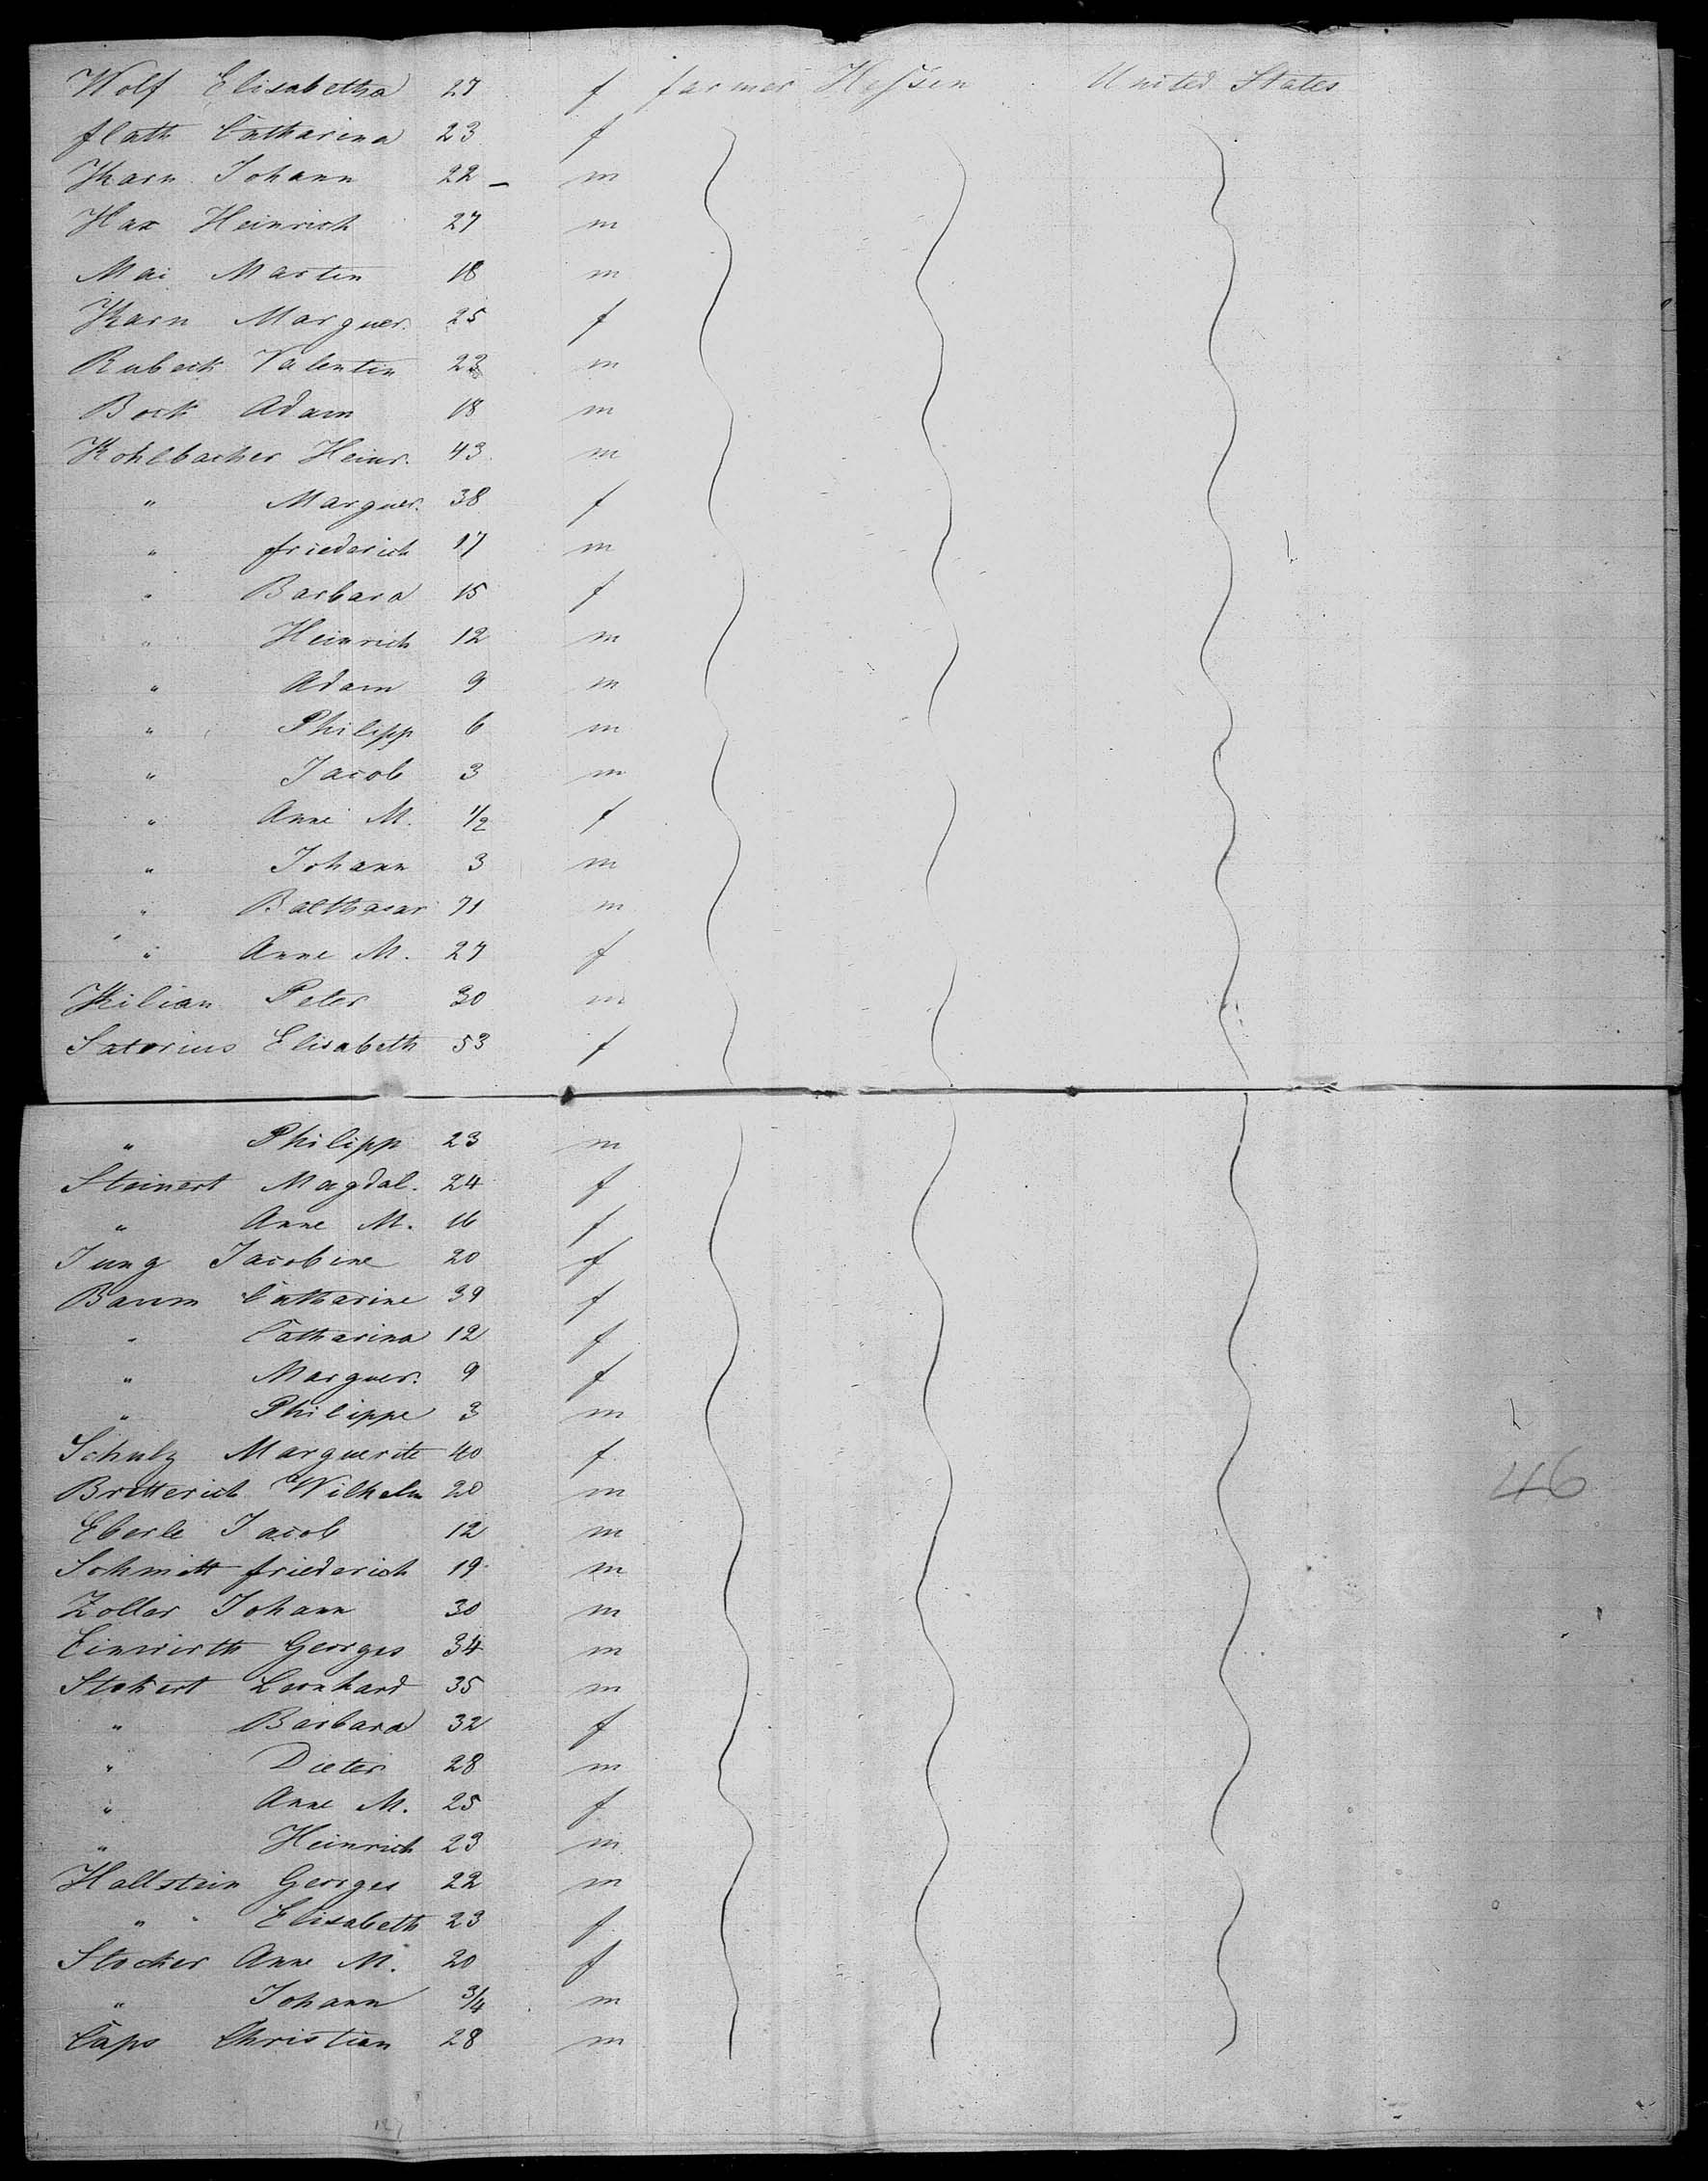 Wolf Elisabetha 27 f farmer Hessen United States
flath Catharina 23 f
Karn Johann 22 - m
Hax Heinrich 27 m
Mai Martin 18 m
Karn Marguer. 25 f
Rubeck Valentin 23 m
Bock Adam 18 m
Kohlbacher Heinr. 43 m
" Marguer. 38 f
" friederich 17 m
" Barbara 15 f
" Heinrich 12 m
" Adam 9 m
" Philipp 6 m
" Jacob 3 m
" Anne M. 1/2 f
" Johann 3 m
" Balthasar 71 m
" Anne M. 27 f
Kilian Peter 30 m
Satorius Elisabeth 53 f
" Philipp 23 m
Steinert Magdal. 24 f
" Anne M. 16 f
Jung Jacobine 20 f
Baum Catharine 39 f
" Catharina 12 f
" Marguer. 9 f
" Philippe 3 m
Schulz Marguerite 40 f
Britterich Wilhelm 20 m
46
Eberle Jacob 12 m
Schmitt friederich 19 m
Zoller Johann 30 m
Einwirth Georges 34 m
Stokert Leonhard 35 m
" Barbara 32 f
" Dieter 28 m
" Anne M. 25 f
" Heinrich 23 m
Hallstein Georges 22 m
" " Elisabeth 23 f
Stocker Anne M. 20 f
" Johann 3/4 m
Caps Christian 28 m